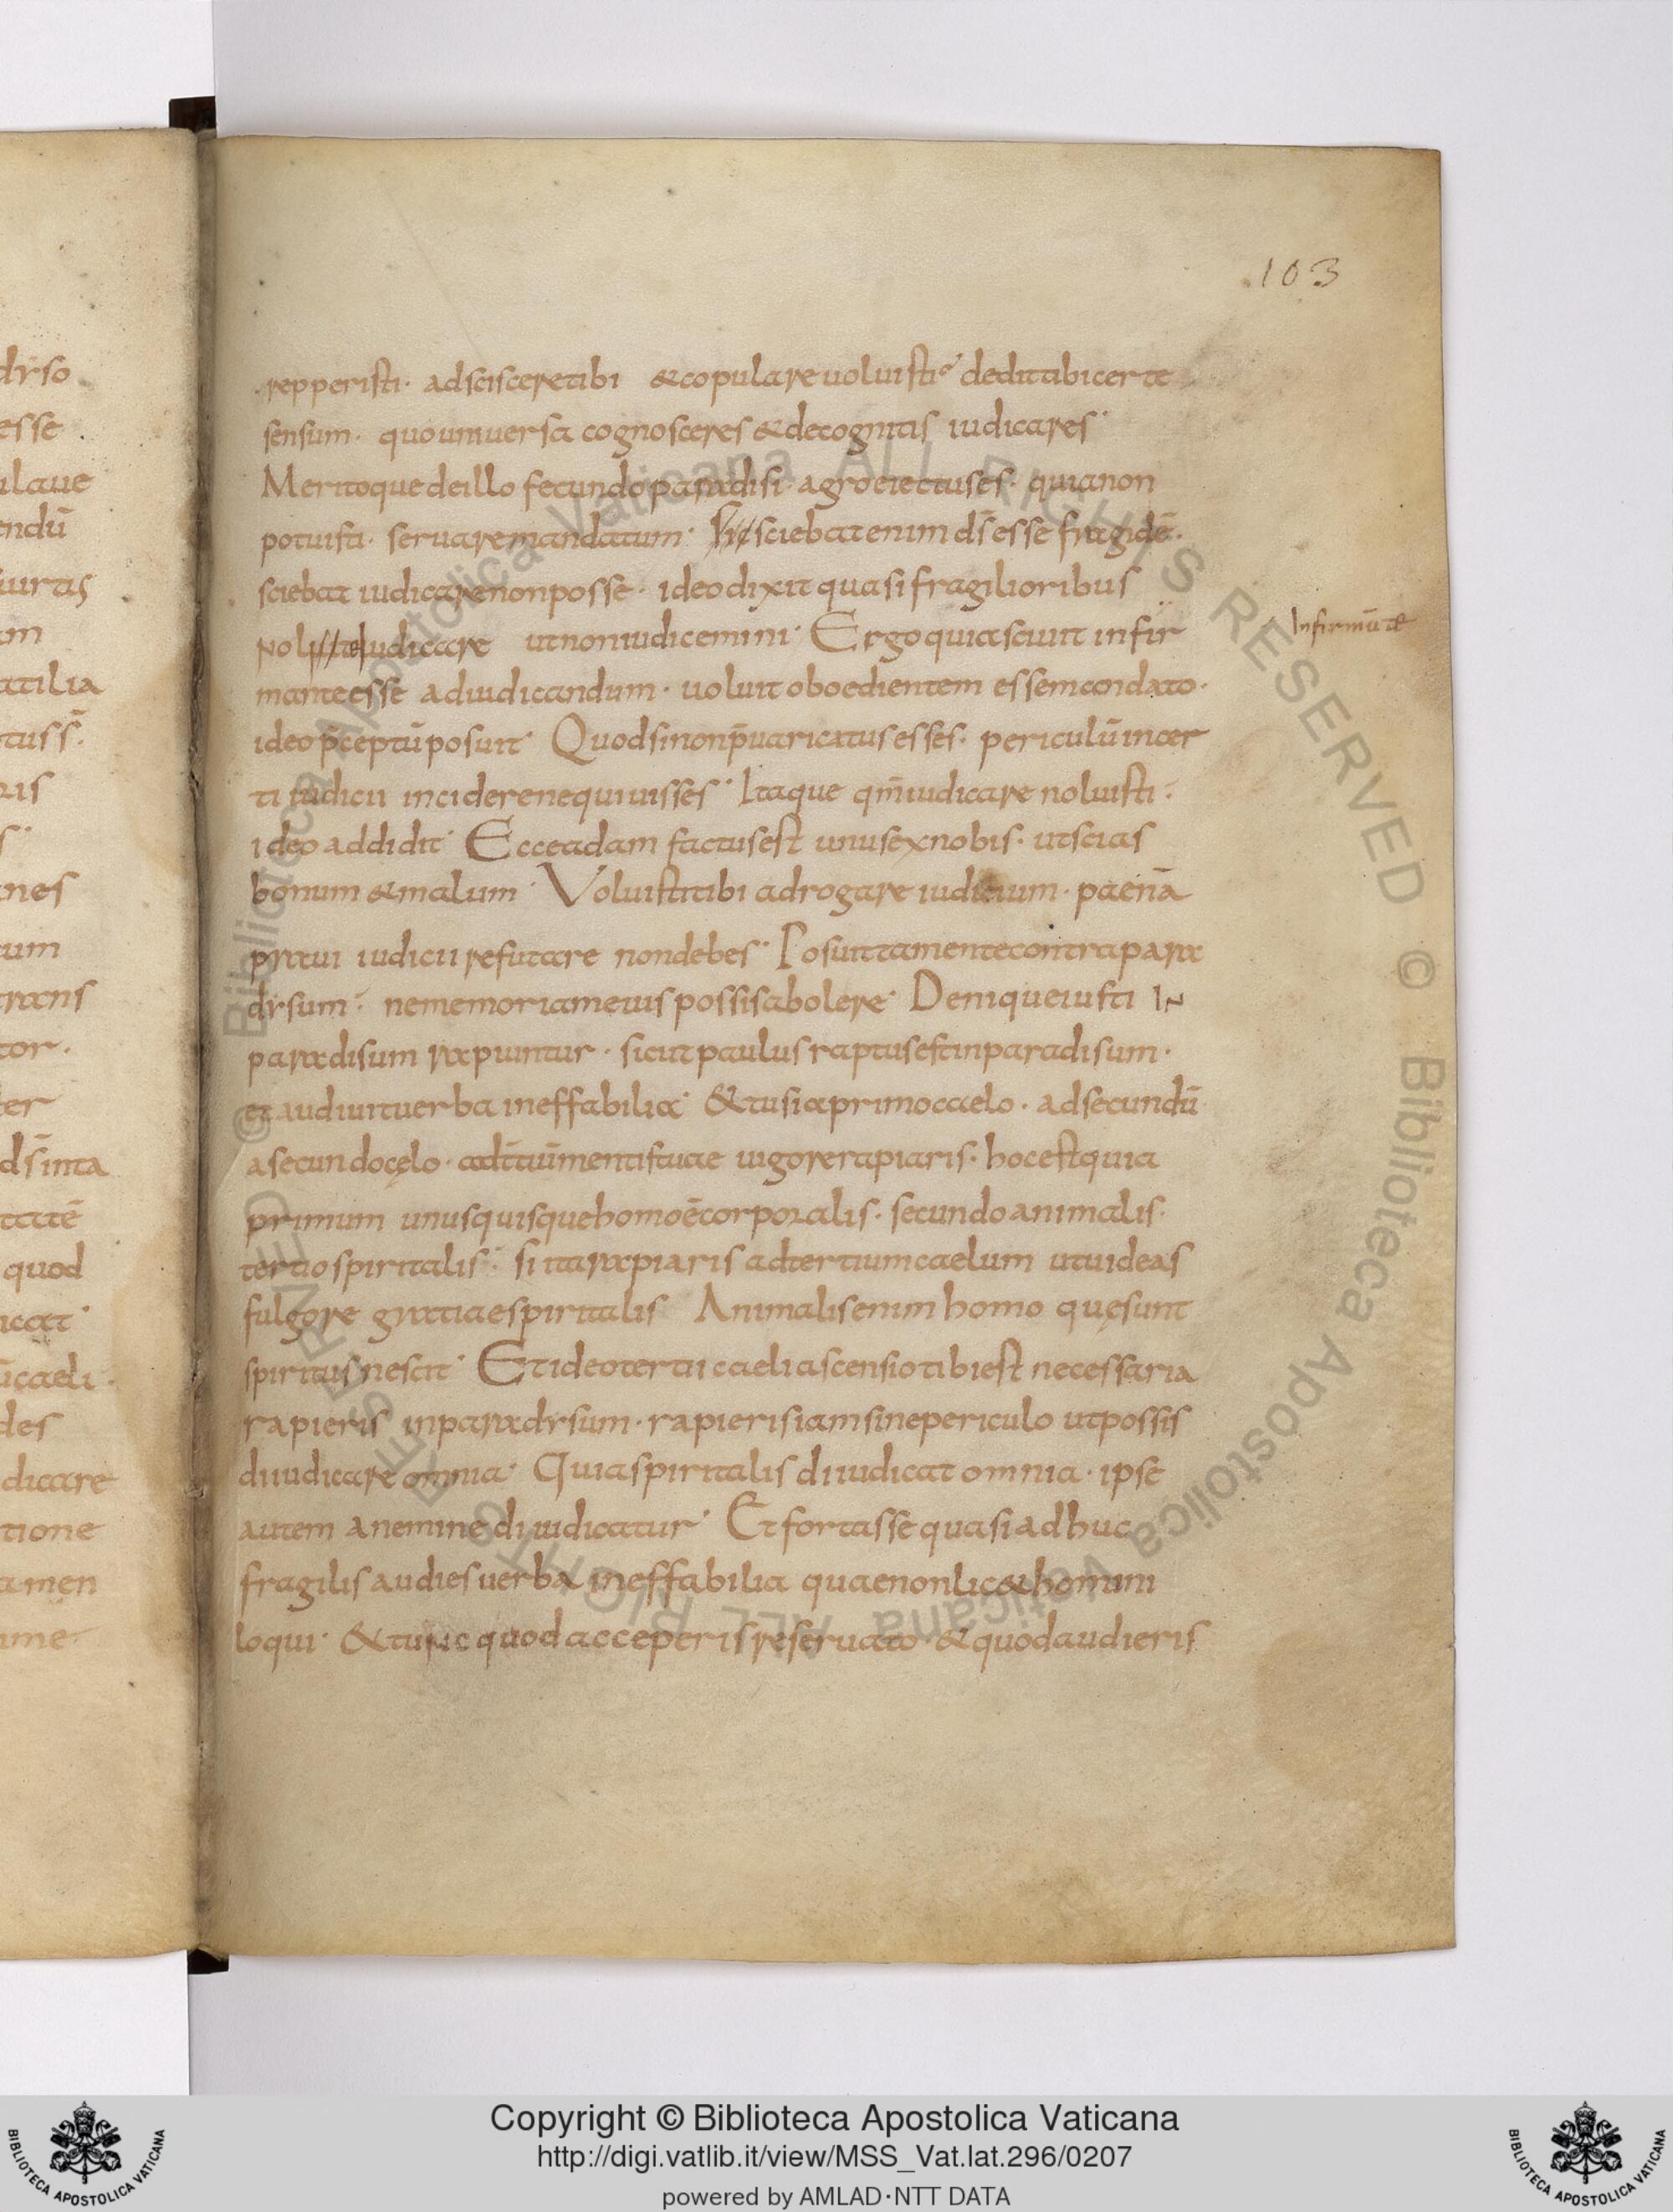 103
repperisti· adscisceretibi &copulareuoluisti· deditabicerte
sensum· quouniuersa cognosceres &decognitis iudicares·
Meritoquedeillo fecundoparadisi· agroeiectuses· quianon
potuisti· seruaremandatum· sciebatenim dŝ esse fragidē·
sciebat iudicarenonposse· ideodixit quasifragilioribus
Nolite iudicare utnoniudicemini· Ergoquiasciuit infir
Infirmū te
manteesse adiudicandum· uoluit oboedientem essemandato·
ideo p̄ceptūposuit· Quodsinonp̄uaricatusesses· periculūincer
ti iudicii incidere nequiuisses· Itaque qm̄iudicare noluisti·
ideo addidit· Ecceadam factusest unusexnobis· utscias
bonum &malum· Voluistitibi adrogare iudicium· paenā
praui iudicii refutare nondebes· Posuittamentecontrapara
dysum· nememoriameiuspossisabolere· Deniqueiusti IN
paradisum rapiuntur· sicutpaulusraptusestinparadisum·
etaudiuituerba ineffabilia· &tusiaprimocaelo· adsecundū
asecundocęlo· adt̄tiūmentistuae uigorerapiaris· hocestquia
primum unusquisquehomoēcorporalis· secundoanimalis·
tertiospiritalis· sitarapiaris adtertiumcaelum utuideas
fulgore gratiaespiritalis Animalisenim homo quęsunt
spiritusnescit· Etideotertii caeliascensiotibiest necessaria
rapieris inparadysum· rapierisiamsinepericulo utpossis
diiudicare omnia· Quiaspiritalis diiudicat omnia· ipse
autem anemine diiudicatur· Etfortassequasiadhuc
fragilis audiesuerba ineffabilia quaenonlic&homini
loqui· &tuNc quod acceperisreseruato· &quodaudieris
Copyright © Biblioteca Apostolica Vaticana
http://digi.vatlib.it/view/MSS_Vat.lat.296/0207
powered by AMLAD·NTT DATA